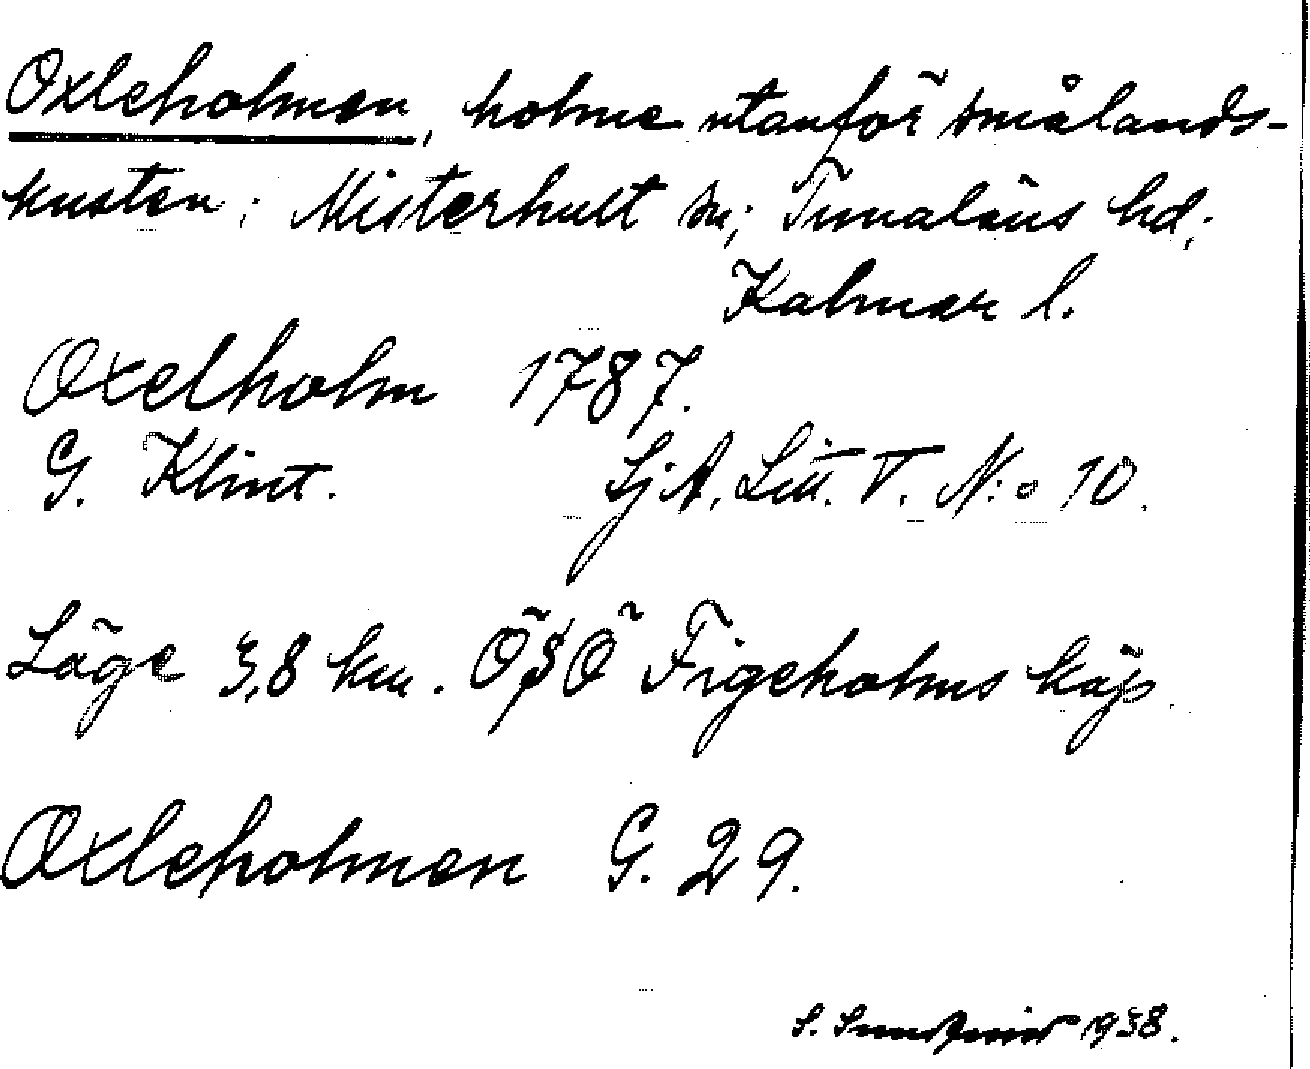 Oxleholmen, holme utanför smålands-
kusten; Misterhult sn; Tunaläns hd;
Kalmar l.
Oxelholm 1787.
G. Klint. SjA. Litt. T. N:o 10.
Läge 3,8 km. ÖSÖ Figeholms köp.
Oxleholmen G. 29.
S. Sundqvist 1938.